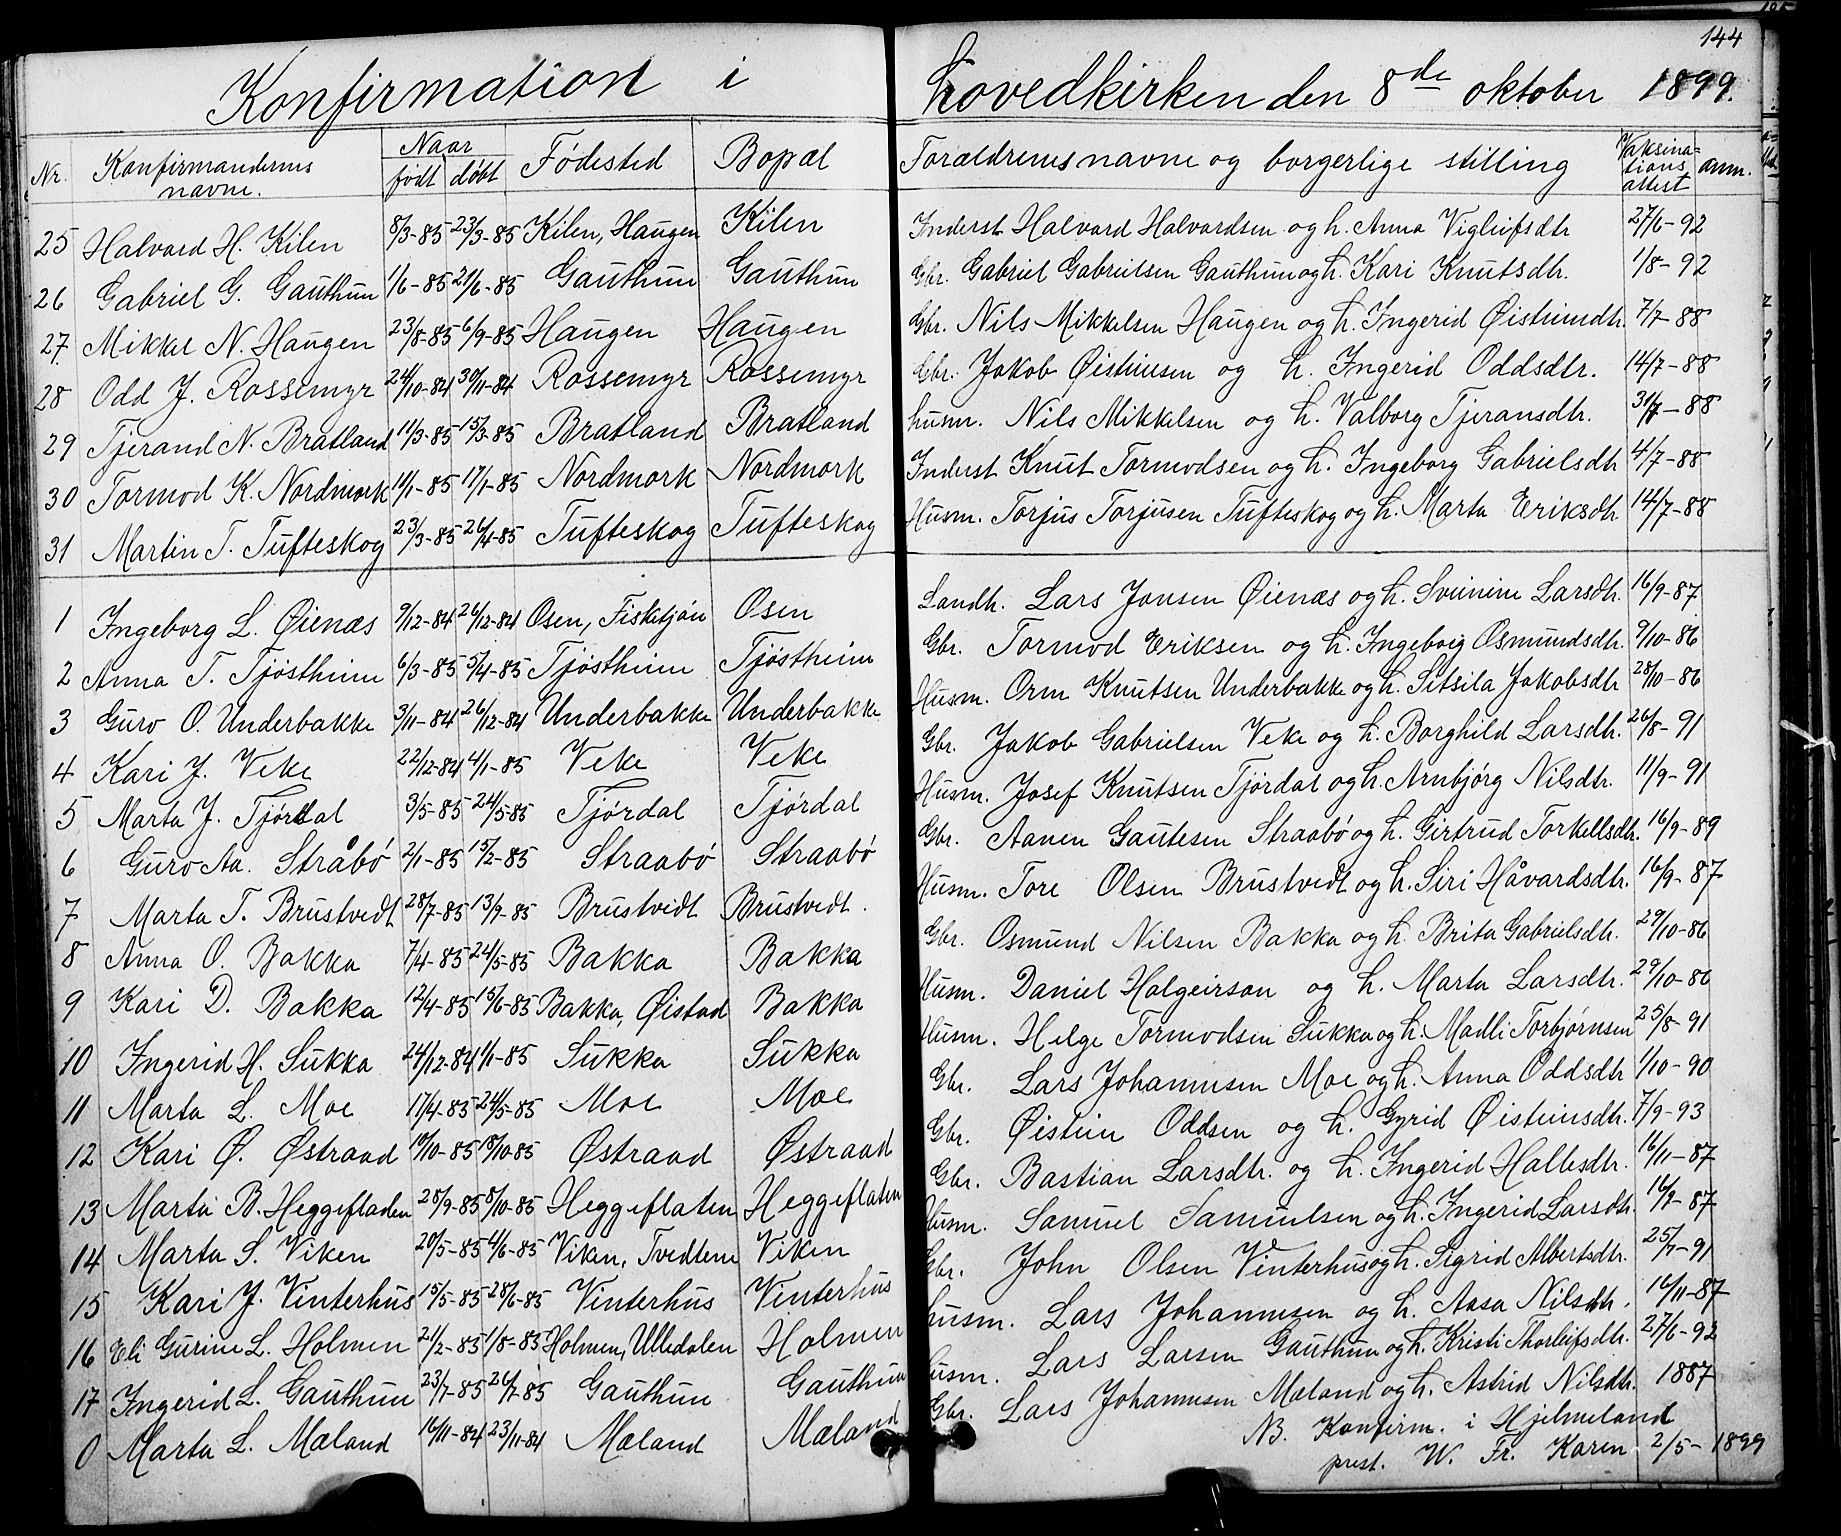 144
Konfirmation i hovedkirken den 8de oktober 1899.
Nr. Konfirmandernes navne. Naar født døbt Fødested Bopæl Forældrenes navne og borgerlige stilling Vaksinationsattest anm.
25 Halvard H. Kilen 8/3-85 23/3-85 Kilen, Haugen Kilen Inderst Halvard Halvardsen og h. Anna Vigleifsdtr 27/6-92
26 Gabriel G. Gauthun 1/6-85 21/6-85 Gauthun Gauthun Gbr. Gabriel Gabrielsen Gauthun og h. Kari Knutsdtr. 1/8-92
27 Mikkel N. Haugen 23/8-85 6/9-85 Haugen Haugen Gbr. Nils Mikkelsen Haugen og h. Ingerid Øisteinsdtr. 7/7-88
28 Odd J. Rossemyr 24/10-84 30/11-84 Rossemyr Rossemyr Gbr. Jakob Øisteinsen og h. Ingerid Oddsdtr. 14/7-88
29 Tjerand N. Bratland 11/3-85 15/3-85 Bratland Bratland husm. Nils Mikkelsen og h. Valborg Tjeransdtr. 31/7-88
30 Tormod K. Nordmork 11/1-85 17/1-85 Nordmork Nordmork Inderst Knut Tormodsen og h. Ingeborg Gabrielsdtr 4/7-88
31 Martin T. Tufteskog 23/3-85 26/4-85 Tufteskog Tufteskog Husm. Torjus Torjusen Tufteskog og h. Marta Eriksdtr 14/7-88
1 Ingeborg L. Øienæs 9/12-84 26/12-84 Osen, Fisketjøn Osen Landh. Lars Jonsen Øienæs og h. Sveinine Larsdtr. 16/9-87
2 Anna T. Tjøstheim 6/3-85 5/4-85 Tjøstheim Tjøstheim Gbr. Tormod Eriksen og h. Ingeborg Osmundsdtr. 9/10-86
3 Guro O. Underbakke 3/11-84 26/12-84 Underbakke Underbakke Husm. Orm Knutsen Underbakke og h. Sitsila Jakobsdtr 28/10-86
4 Kari J. Veke 22/12-84 4/1-85 Veke Veke Gbr. Jakob Gabrielsen Veke og h. Borghild Larsdtr. 26/8-91
5 Marta J. Tjørdal 3/5-85 24/5-85 Tjørdal Tjørdal Husm. Josef Knutsen Tjørdal og h. Arnbjørg Nilsdtr. 11/9-91
6 Guro Aa. Stråbø 2/1-85 15/2-85 Straabø Straabø Gbr. Aanen Gautesen Straabø og h. Girtrud Torkellsdtr. 16/9-89
7 Marta T. Brustvedt 28/7-85 13/9-85 Brustvedt Brustvedt. Husm. Tore Olsen Brustvedt og h. Siri Håvardsdtr. 16/9-87
8 Anna O. Bakka 7/4-85 24/5-85 Bakka Bakka Gbr. Osmund Nilsen Bakka og h. Brita Gabrielsdtr. 29/10-86
9 Kari D. Bakka 12/4-85 15/6-85 Bakka, Øistad Bakka Husm. Daniel Holgeirson og h. Marta Larsdtr. 29/10-86
10 Ingerid H. Sukka 24/12-84 1/1-85 Sukka Sukka Husm. Helge Tormodsen Sukka og h. Madli Torbjørnsen 25/8-91
11 Marta L. Moe 17/4-85 24/5-85 Moe Moe Gbr. Lars Johannesen Moe og h. Anna Oddsdtr 1/10-90
12 Kari Ø. Østraad 10/10-85 18/10-85 Østraad Østraad Gbr. Øistein Oddsen og h. Gyrid Øisteinsdtr. 7/9-93
13 Marta B. Heggefladen 28/9-85 8/10-85 Heggeflaten Heggeflaten Gbr. Bastian Larsdtr. og h. Ingerid Hallesdtr. 16/11-87
14 Marta S. Viken 20/5-85 4/6-85 Viken, Tvedtene Viken Husm. Samuel Samuelsen og h. Ingerid Larsdtr. 16/9-87
15 Kari J. Vinterhus 15/5-85 28/6-85 Vinterhus Vinterhus Gbr. John Olsen Vinterhus og h. Sigrid Albertsdtr. 25/7-91
16 Eli Gurine L. Holmen 21/2-85 1/8-85 Holmen, Ulledalen Holmen husm. Lars Johannesen og h. Aasa Nilsdtr. 16/11-87
17 Ingerid L. Gauthun 23/7-85 26/7-85 Gauthun Gauthun husm. Lars Larsen Gauthun og h. Kristi Thorleifsdtr. 27/6-92
0 Marta L. Mæland 16/11-84 23/11-84 Mæland Mæland Gbr. Lars Johannesen Mæland og h. Astrid Nilsdtr. 1887
NB. Konfirm. i Hjelmeland
prest. W. Fr. Koren 2/5-1899